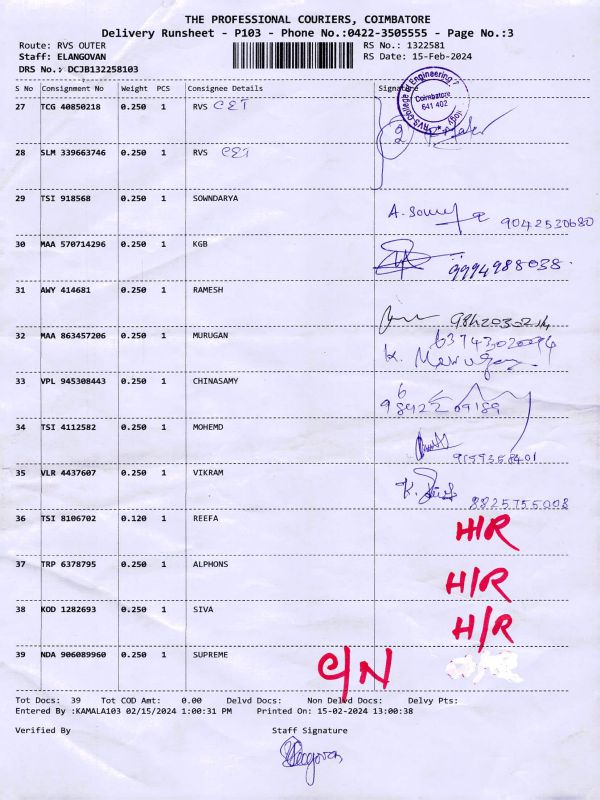 THE PROFESSIONAL COURIERS, COIMBATORE
Delivery Runsheet - P103 - Phone No.:0422-3505555 - Page No.:3
Route: RVS OUTER RS No.: 1322581
Staff: ELANGOVAN RS Date: 15-Feb-2024
DRS No.: DCJB132258103
S No Consignment No Weight PCS Consignee Details Signature
RVS College of Engineering
Coimbatore
641 402
27 TCG 40850218 0.250 1 RVS CET
28 SLM 339663746 0.250 1 RVS CET
29 TSI 918568 0.250 1 SOWNDARYA
9042530680
30 MAA 570714296 0.250 1 KGB
9994988038.
31 AWY 414681 0.250 1 RAMESH
9842030214
32 MAA 863457206 0.250 1 MURUGAN
6374302094
K. Murugan.
33 VPL 945308443 0.250 1 CHINASAMY
34 TSI 4112582 0.250 1 MOHEMD
9159358401
35 VLR 4437607 0.250 1 VIKRAM
8825755008
36 TSI 8106702 0.120 1 REEFA H/R
37 TRP 6378795 0.250 1 ALPHONS H/R
38 KOD 1282693 0.250 1 SIVA H/R
39 NDA 906089960 0.250 1 SUPREME C/N
Tot Docs: 39 Tot COD Amt: 0.00 Delvd Docs: Non Delvd Docs: Delvy Pts:
Entered By :KAMALA103 02/15/2024 1:00:31 PM Printed On: 15-02-2024 13:00:38
Verified By Staff Signature
Elangovan